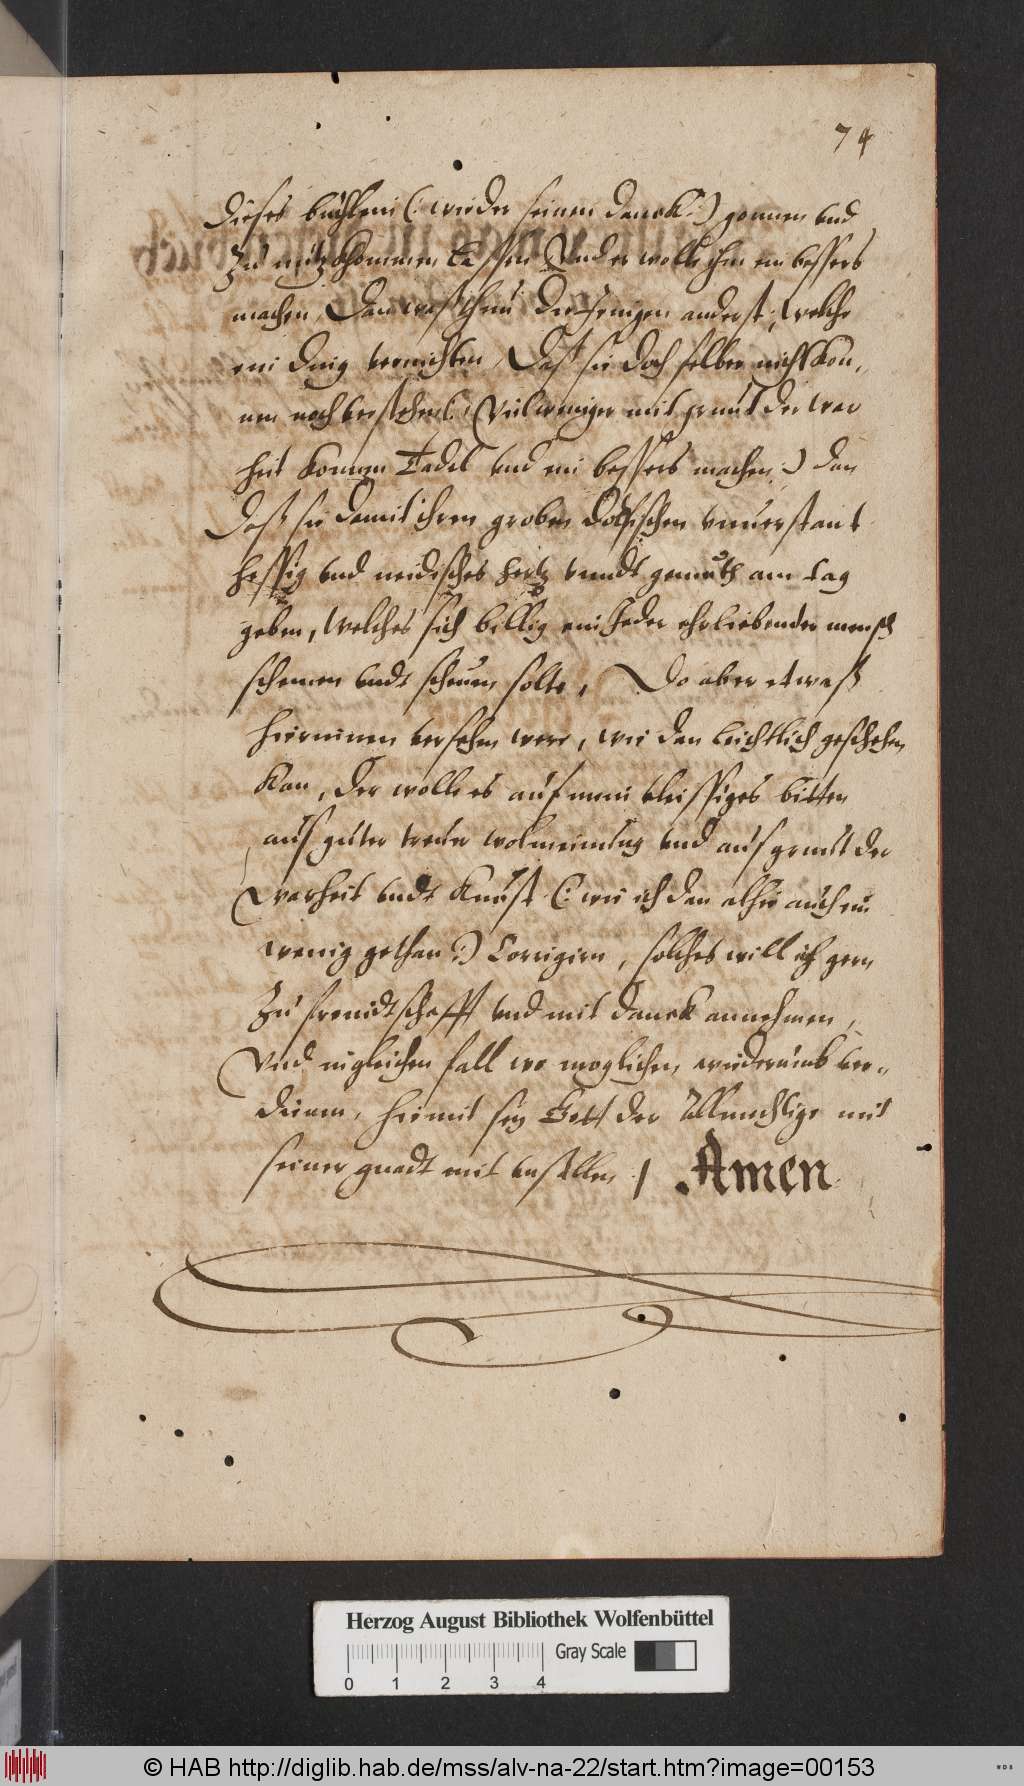 74
Dieses buchlein (: wieder seinen danck :) gonnen und
Zu nutz kommen lassen Und er wolle ihm ein bessers
machen, Dan waß thun die Jenigen anderst, welche
ein ding vernichten, Daß sie doch selber nicht kon,
nen noch verstehen (: Viel weniger mit grunt der war
heit konnen Tadel und ein bessers machen :) dan
daß sie damit ihren groben Dolpischen unuerstant
hessig und neidisches hertz unndt gemuth am tag
geben, welches sich billig ein Jeder ehrliebender mensch
schemen undt scheuen solte, Do aber etwaß
hierinnen versehen were, wie dan leichtlich geschehen
kan, der wolle es auf mein vleissiges bitten
auß guter treuer wolmeinung und auß grunt der
warheit undt kunst (: wie ich dan alhie auch ein
wenig gethan :) Corrigirn, solches will ich gern
Zu freundtschafft und mit danck annehmen,
Und in gleichen fall wo moglichen wiederumb ver-
dienen, hiemit sey Gott der Allmechtige mit
seiner gnadt mit uns allen / Amen
Herzog August Bibliothek Wolfenbüttel
0 1 2 3 4
Gray Scale
© HAB http://diglib.hab.de/mss/alv-na-22/start.htm?image=00153